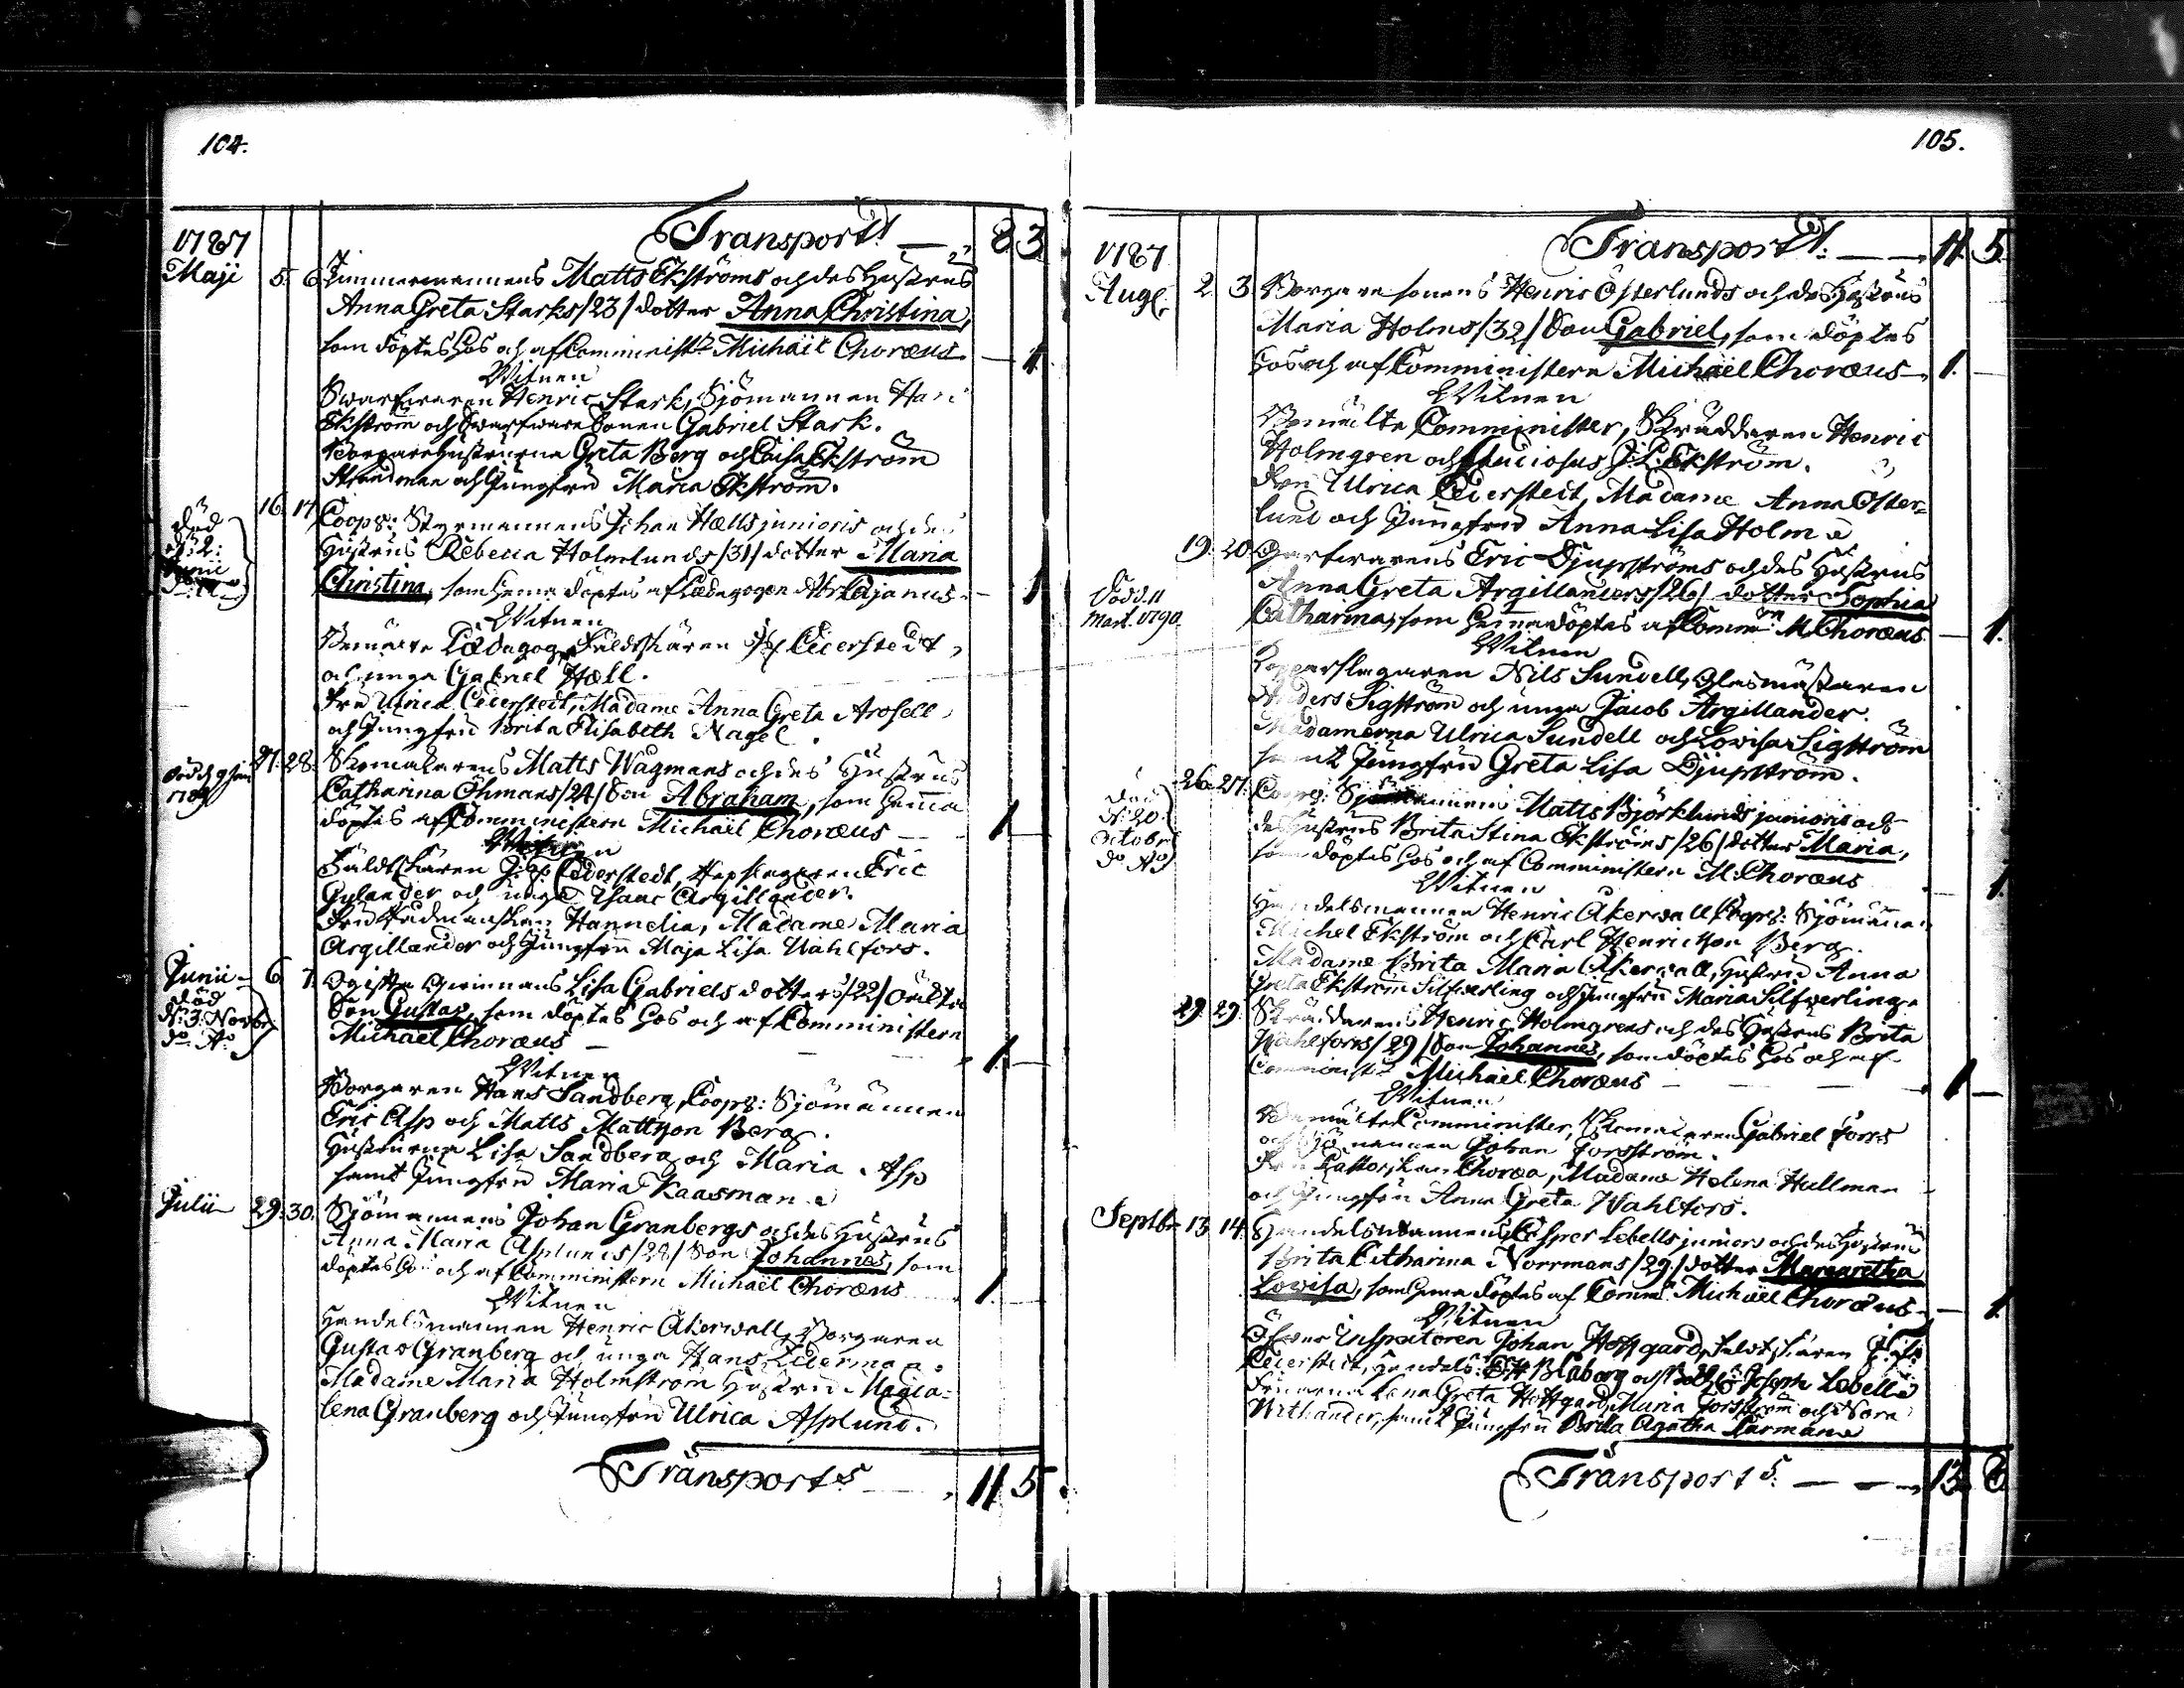 104.
Transport: — 8 3
1787
Maji 5. 6. Zimmermannens Matts Ekströms och des Hustrus
Anna Greta Starks /23/ dotter Anna Christina,
som döptes hos och af Comminist: Michaël Choræus — 1.
Witnen
Swarfwaren Henric Stark, Sjömannen
Ekström och Swarfware Sonen Gabriel Stark.
Borgare Hustrurna Greta Berg och Caisa Ekström
och Jungfru Maria Ekström.
16. 17. Coops: Styrmannens Johan Hælls junioris och des
Död d: 2: Junii
Hustrus Rebecca Holmlunds /31/ dotter Maria
Christina, som hema döptes af Pædagogen Cajanus — 1
Witnen
Bemälte Pædagog, Fältskären Cederstedt,
och unga Gabriel Hæll.
Fru Ulrica Cederstedt, Madame Anna Greta Arosell
och Jungfru Brita Elisabeth Nagel.
27. 28. Skomakarens Matts Wågmans och des Hustrus
död d. 9 Jan 1789
Catharina Öhmans /24/ Son Abraham, som hemma
döptes af Comministern Michaël Choræus — 1
Witnen
Fältskären Cederstedt, Repslagaren Eric
Gylander och unga Isaac Argillander.
Fru Hannelia, Madame Maria
Argillander och Jungfru Maja Lisa Wahlfors.
Junii 6 7. Ogifta Qwinnans Lisa Gabriels dotters /22/ oäkta
död d: 3. Novbr do Ao
Son Gustav, som döptes hos och af Comministern
Michaël Choræus — 1.
Witnen
Borgaren Hans Sandberg, Coops: Sjömännen
Eric Asp och Matts Mattson Berg.
Hustrurna Lisa Sandberg och Maria Asp
samt Jungfru Maria Kaasman.
Julii 29. 30. Sjömannens Johan Granbergs och des Hustrus
Anna Maria Asplunds /28/ Son Johannes, som
döptes hos och af Comministern Michaël Choræus 1.
Witnen
Handelsmannen Henric Åkerwall, Borgaren
Gustav Granberg och unga Hans Lederman.
Madame Maria Holmström Hustru Magda-
lena Granberg och Jungfru Ulrica Asplund.
Transport 11 5
105.
Transport: — 11. 5
1787
Aug. 2. 3. Borgare sonens Henric Österlunds och des Hustrus
Maria Holms /32/ Son Gabriel, som döptes
hos och af Comministern Michaël Choræus — 1.
Witnen
Bemälte Comminister, Skräddaren Henric
Holmgren och Studiosus J: L: Ekström.
Fru Ulrica Cederstedt, Madame Anna Öster-
lund och Jungfru Anna Lisa Holm.
19. 20. Garfwarens Eric Djupströms och des Hustrus
Död d. 11 Mart. 1790
Anna Greta Argillanders /26/ dotter Sophia
Catharina, som hemma döptes af Comm: M. Choræus — 1.
Witnen
Kopparslagaren Nils Sundell, Glasmästaren
Anders Sigström och unga Jacob Argillander.
Madamerna Ulrica Sundell och Lovisa Sigström
samt Jungfru Greta Lisa Djupström.
26. 27. Coops: Sjömannens Matts Björklunds junioris och
död d: 20 Octobr do Ao
des Hustrus Brita Stina Ekströms /26/ dotter Maria,
som döptes hos och af Comministern M: Choræus — 1.
Witnen
Handelsmannen Henric Åkerwall, Coops: Sjömännen
Michel Ekström och Carl Henricsson Berg.
Madame Brita Maria Åkerwall, Hustru Anna
Greta Ekström Silfwerling och Jungfru Maria Silfwerling.
29. 29. Skräddarens Henric Holmgrens och des Hustrus Brita
Wahlforss /29/ Son Johannes, som döptes hos och af
Comminist: Michaël Choræus — 1
Witnen
Bemälte Comminister, Skomakaren Gabriel Forss
och Sjömannen Johan Forsström.
Fru Pastorskan Choræa, Madame Helena Hallman
och Jungfru Anna Greta Wahlfors.
Septbr 13. 14. Handelsmannens Casper Lebells juniors och des Hustrus
Brita Catharina Norrmans /29/ dotter Margaretha
Lovisa, som hema döptes af Comm: Michaël Choræus — 1.
Witnen
Öfwer Inspectoren Johan Hoffgard, Fältskären
Cederstedt, Handels: Blåberg och Joseph Lebell
Fruarna Lena Greta Hoffgard, Maria Forsström och Nora
Withander, samt Jungfru Brita Agatha Carman
Transport: — 13. 8.